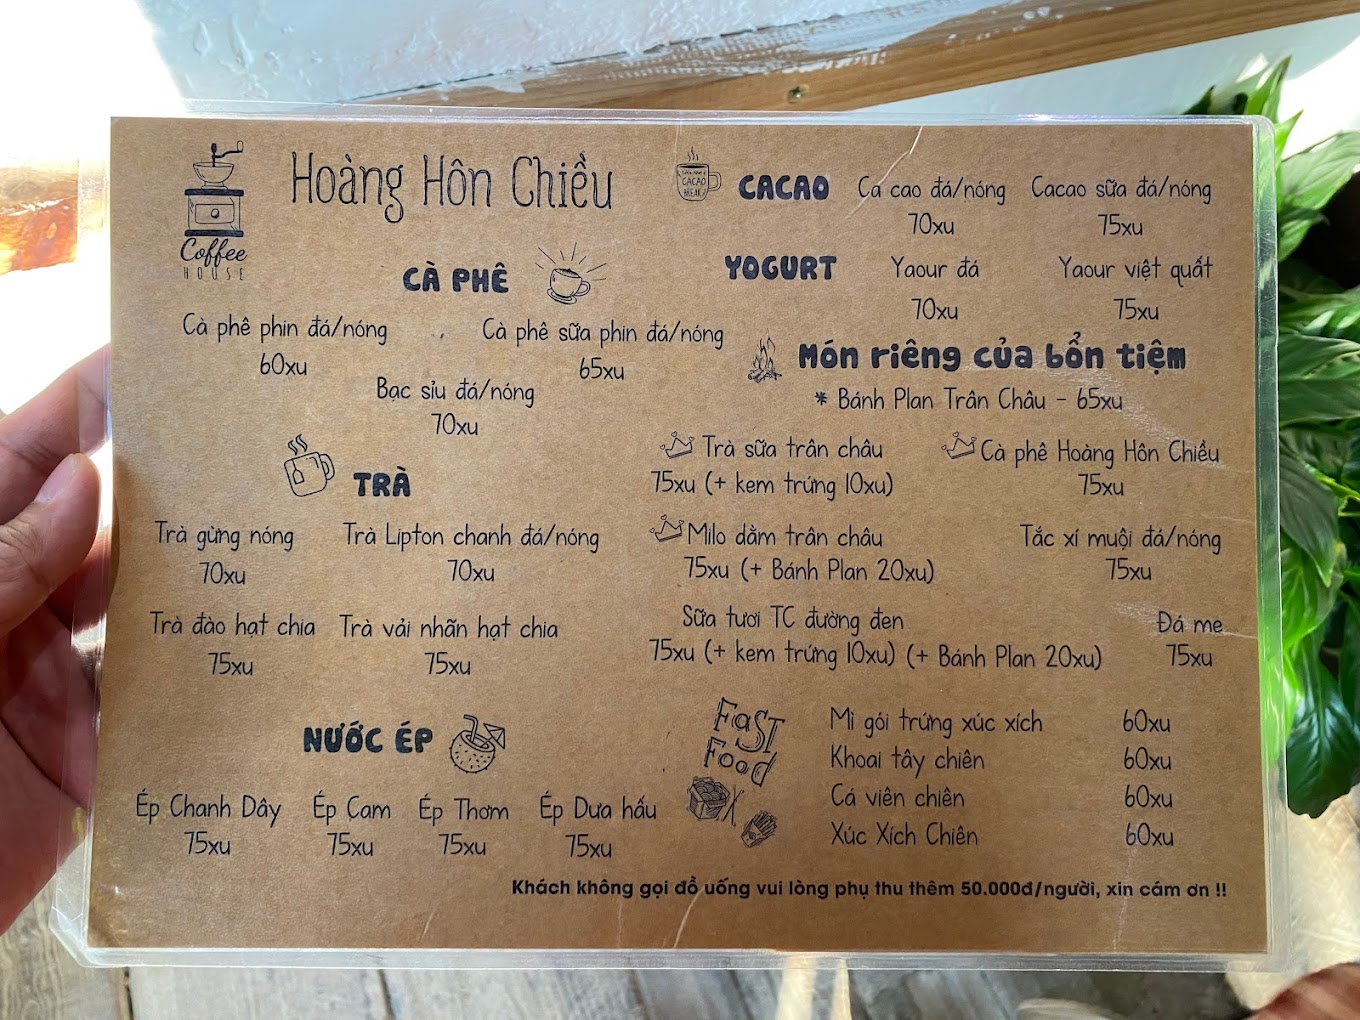 Hoàng Hôn Chiều
Coffee
HOUSE
CÀ PHÊ
Cà phê phin đá/nóng
60xu
Cà phê sữa phin đá/nóng
65xu
Bạc sỉu đá/nóng
70xu
TRÀ
Trà gừng nóng
70xu
Trà Lipton chanh đá/nóng
70xu
Trà đào hạt chia
75xu
Trà vải nhãn hạt chia
75xu
NƯỚC ÉP
Ép Chanh Dây
75xu
Ép Cam
75xu
Ép Thơm
75xu
Ép Dưa hấu
75xu
CACAO
BREAK
CACAO
Ca cao đá/nóng
70xu
Cacao sữa đá/nóng
75xu
YOGURT
Yaour đá
70xu
Yaour việt quất
75xu
Món riêng của bổn tiệm
* Bánh Plan Trân Châu - 65xu
Trà sữa trân châu
75xu (+ kem trứng 10xu)
Cà phê Hoàng Hôn Chiều
75xu
Milo dằm trân châu
75xu (+ Bánh Plan 20xu)
Tắc xí muội đá/nóng
75xu
Sữa tươi TC đường đen
75xu (+ kem trứng 10xu) (+ Bánh Plan 20xu)
Đá me
75xu
FaST
Food
Mì gói trứng xúc xích 60xu
Khoai tây chiên 60xu
Cá viên chiên 60xu
Xúc Xích Chiên 60xu
Khách không gọi đồ uống vui lòng phụ thu thêm 50.000đ/người, xin cám ơn !!